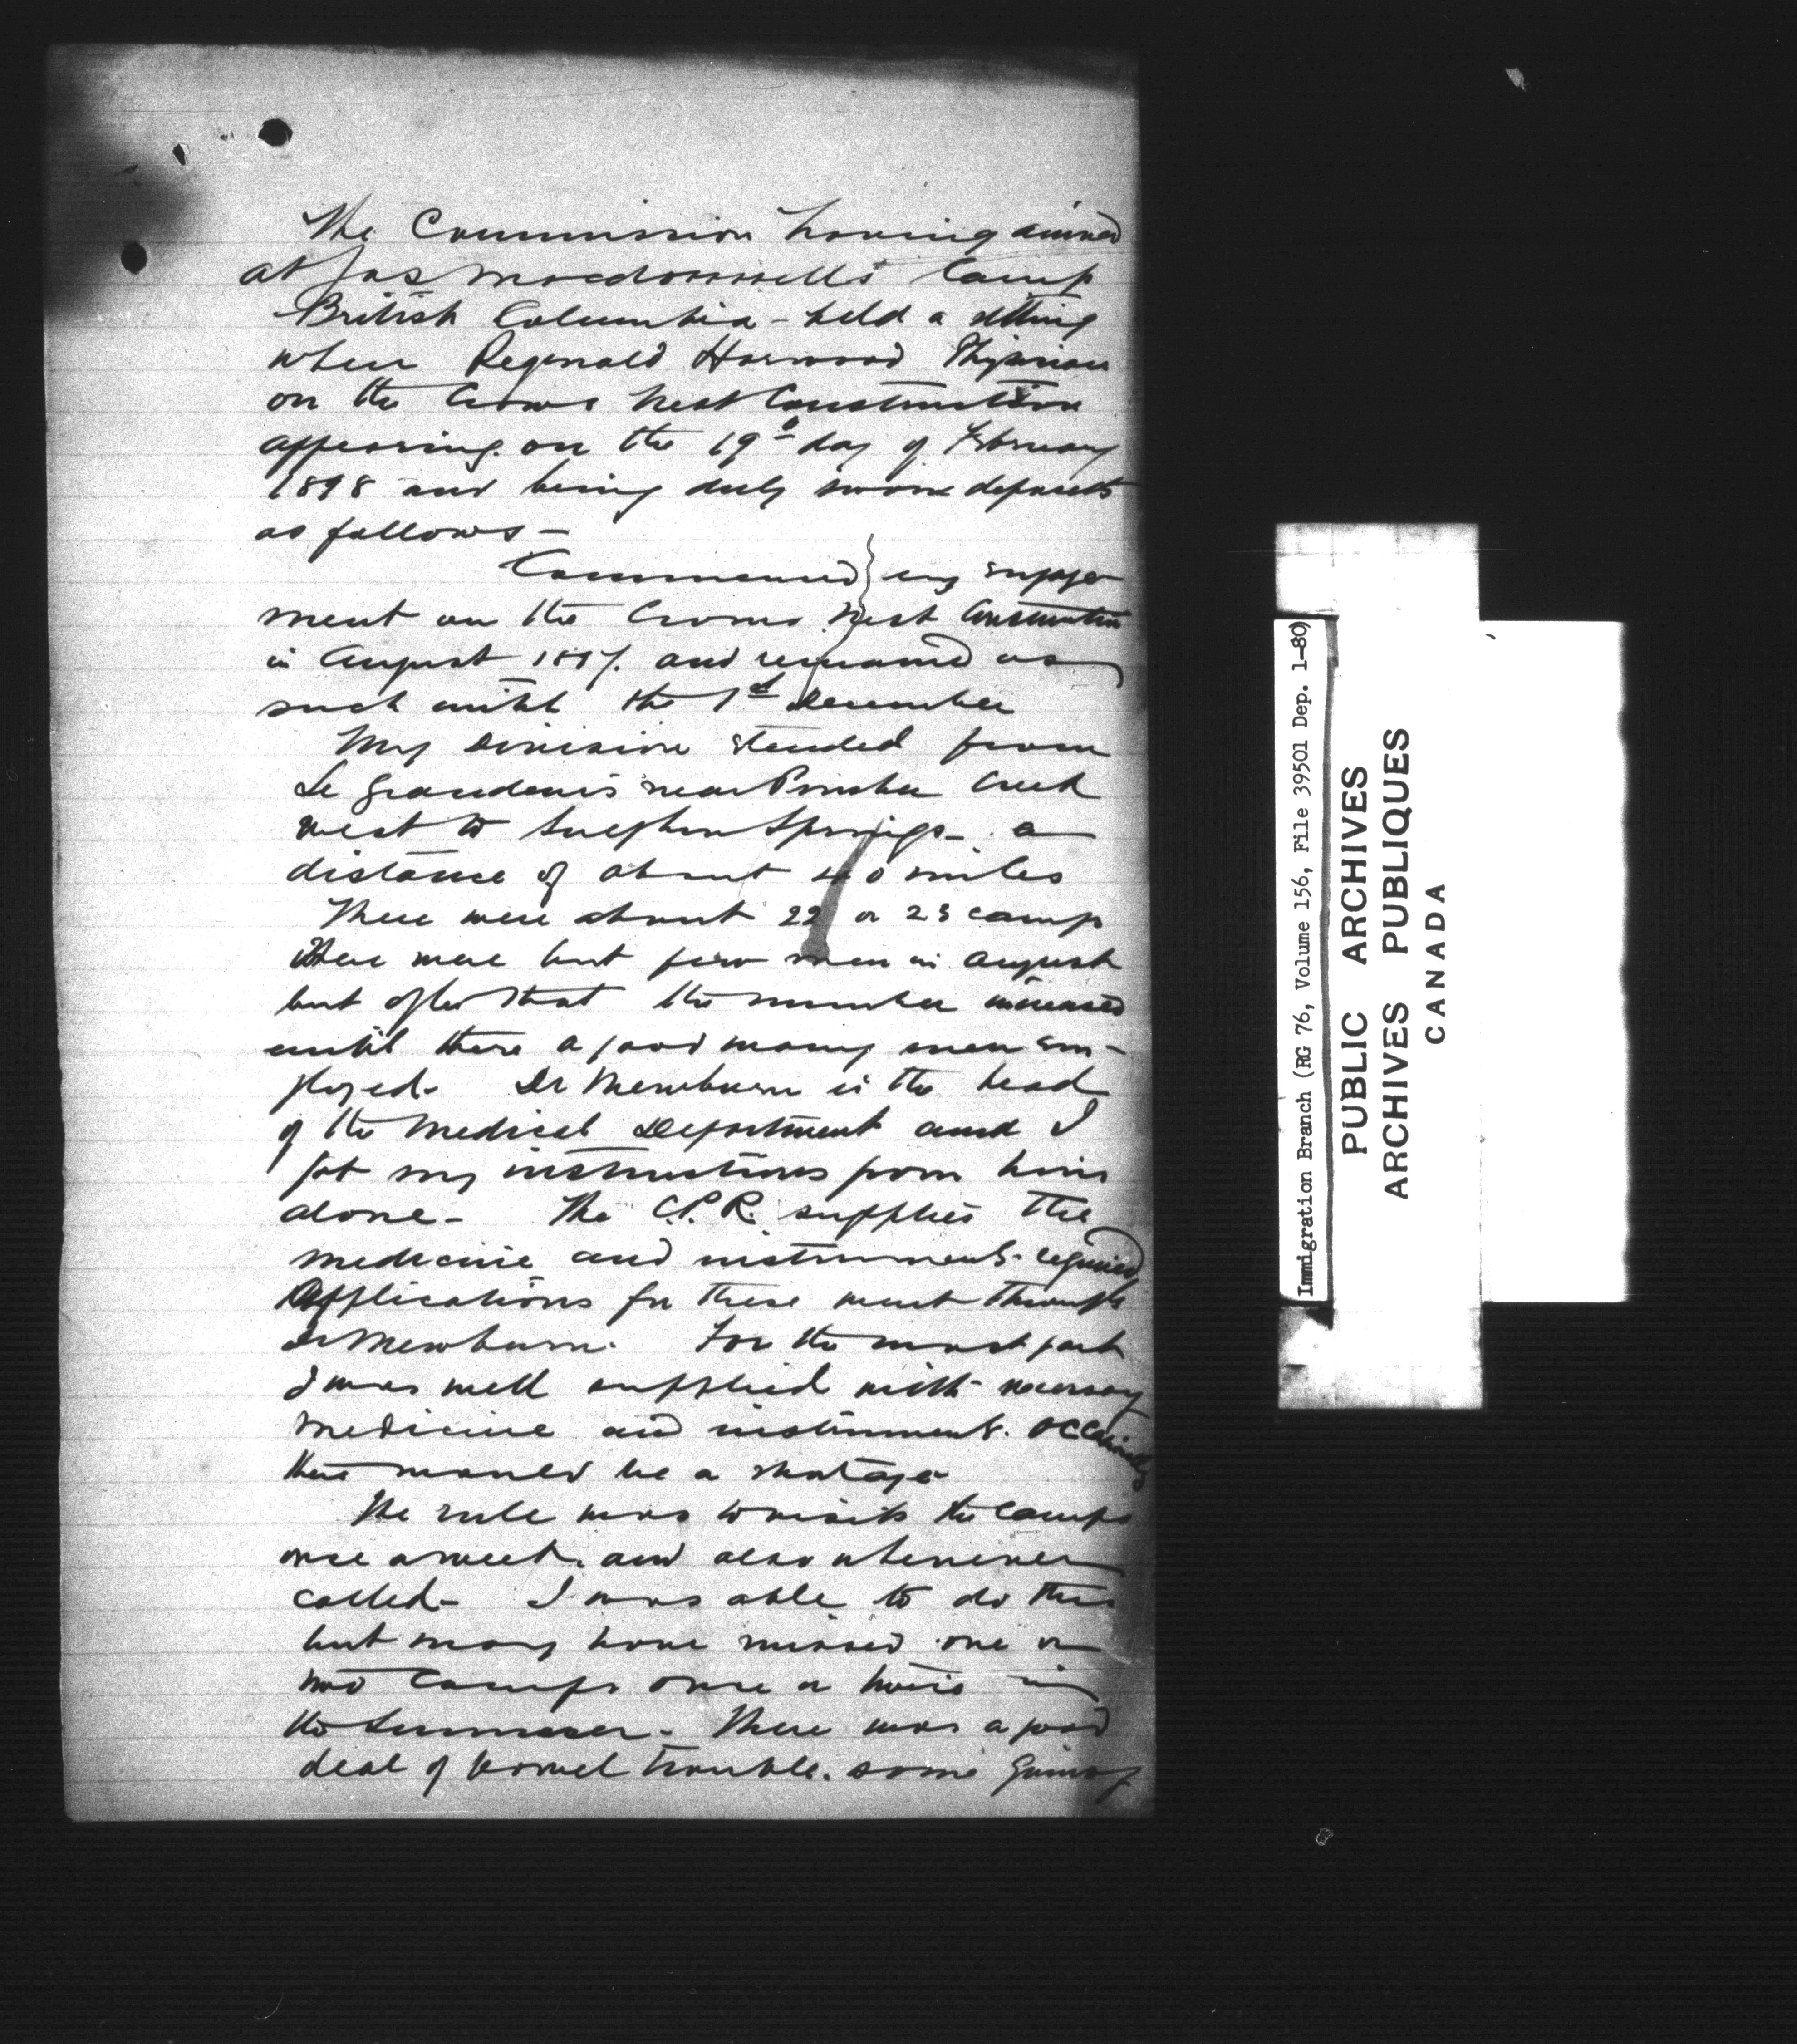 The Commission having arrived
at Jas Macdonnell's Camp
British Columbia - held a sitting
when Reginald Horwood Physician
on the Crows Nest Construction
appearing on the 19th day of February
1898 and being duly sworn deposeth
as follows -
Commenced my engage
ment on the Crows Nest Construction
in August 1897. and remained as
such until the 1st December
My Division xtended from
Le Grandeur's near Pincher Creek
west to Sulphur Springs - a
distance of about 40 miles
There were about 22 or 23 camps
There were but few men in August
but after that the number increased
until there a good many men em-
ployed - Dr Mewburn is the head
of the Medical Department and I
got my instructions from him
alone - The C.P.R. supplies the
medicine and instruments required
Applications for these went through
Dr Mewburn. For the most part
I was well supplied with necessary
medicine and instruments. Occasionally
there would be a shortage
The rule was to visit the Camps
once a week. and also whenever
called - I was able to do this
but may have missed one or
two Camps once or twice in
the Summer - There was a good
deal of bowel trouble. some
Immigration Branch (RG 76, Volume 156, File 39501 Dep. 1-80)
PUBLIC ARCHIVES
ARCHIVES PUBLIQUES
CANADA